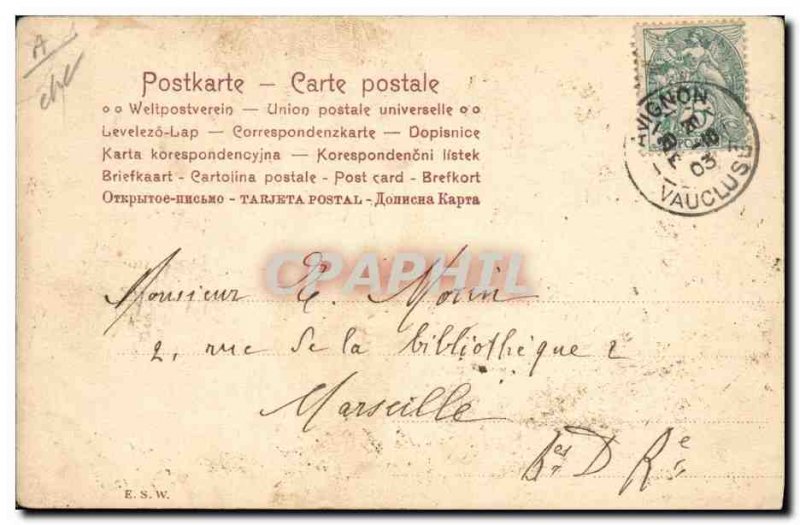 A
Postkarte — Carte postale
Weltpostverein — Union postale universelle
Levelező-Lap — Correspondenzkarte — Dopisnice
Karta korespondencyjna — Korespondenční lístek
Briefkaart - Cartolina postale - Post card - Brefkort
Открытое-письмо - TARJETA POSTAL - Дописна Карта
AVIGNON
03
VAUCLUSE
CPAPHIL
Monsieur E. Morin
2, rue de la bibliothèque 2
Marseille
Bes D Re
E. S. W.